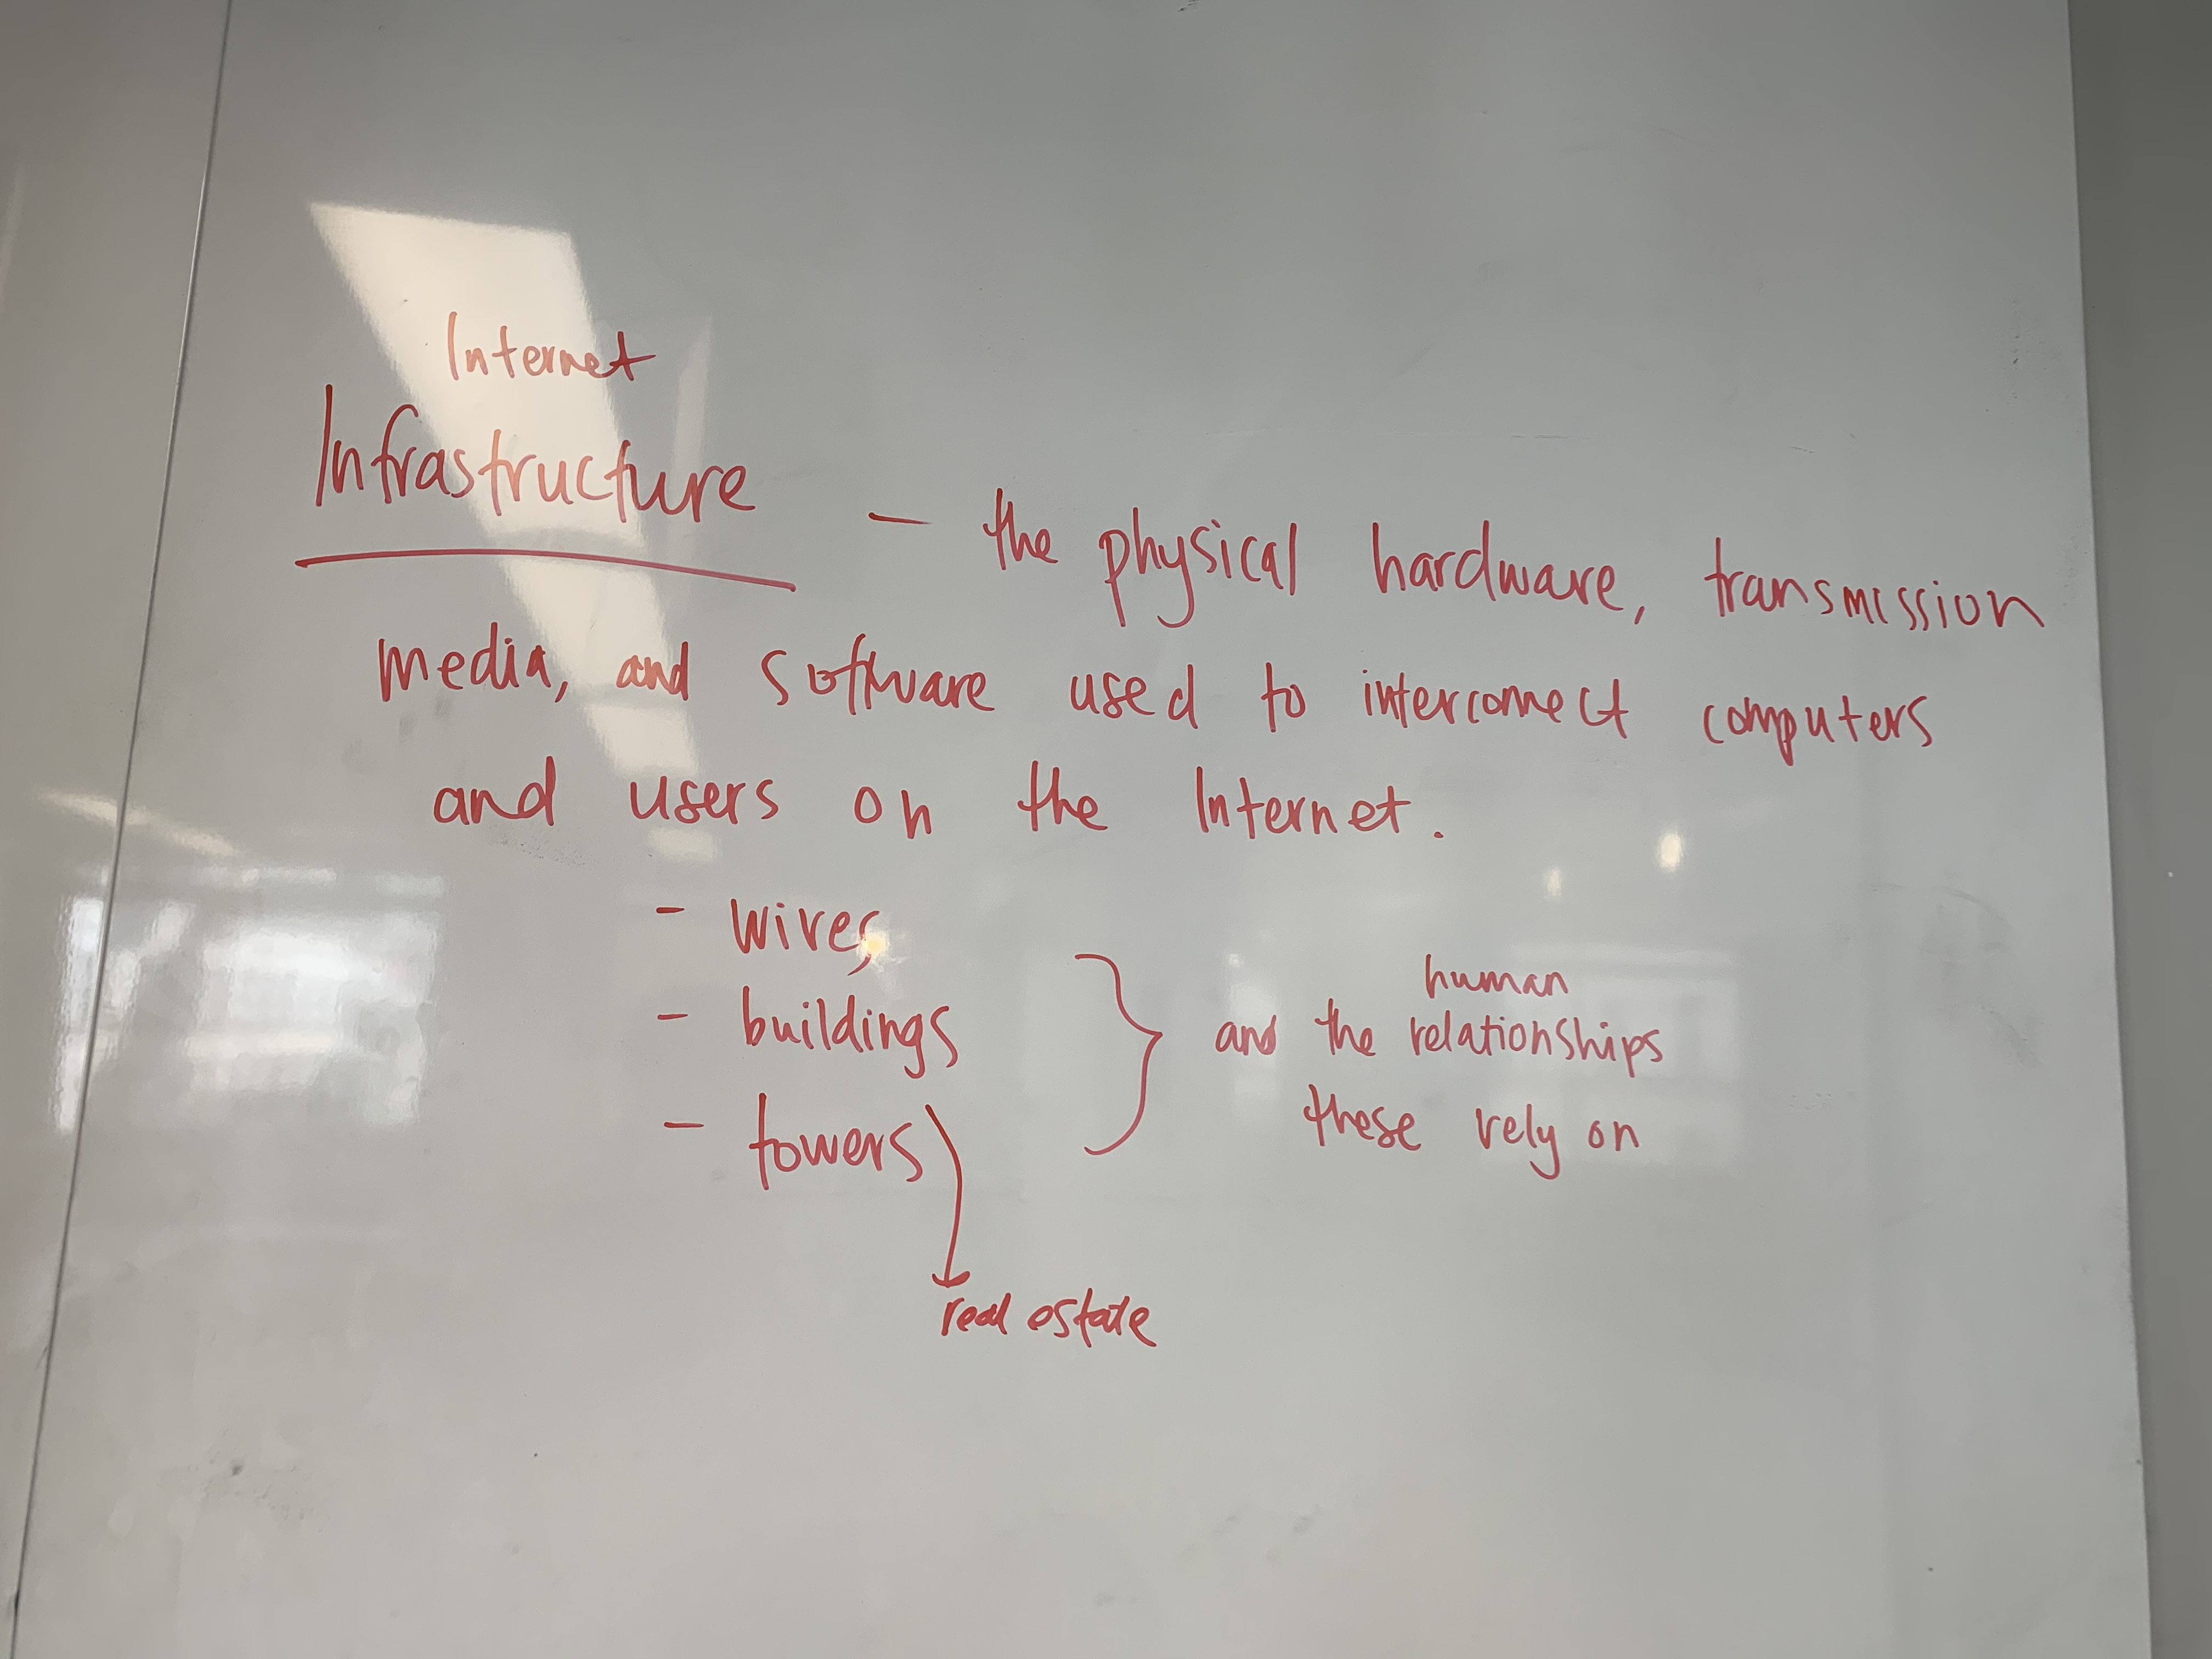 Internet
Infrastructure - the physical hardware, transmission
media, and software used to interconnect computers
and users on the Internet.
- wires
- buildings
- towers
human
and the relationships
these rely on
real estate